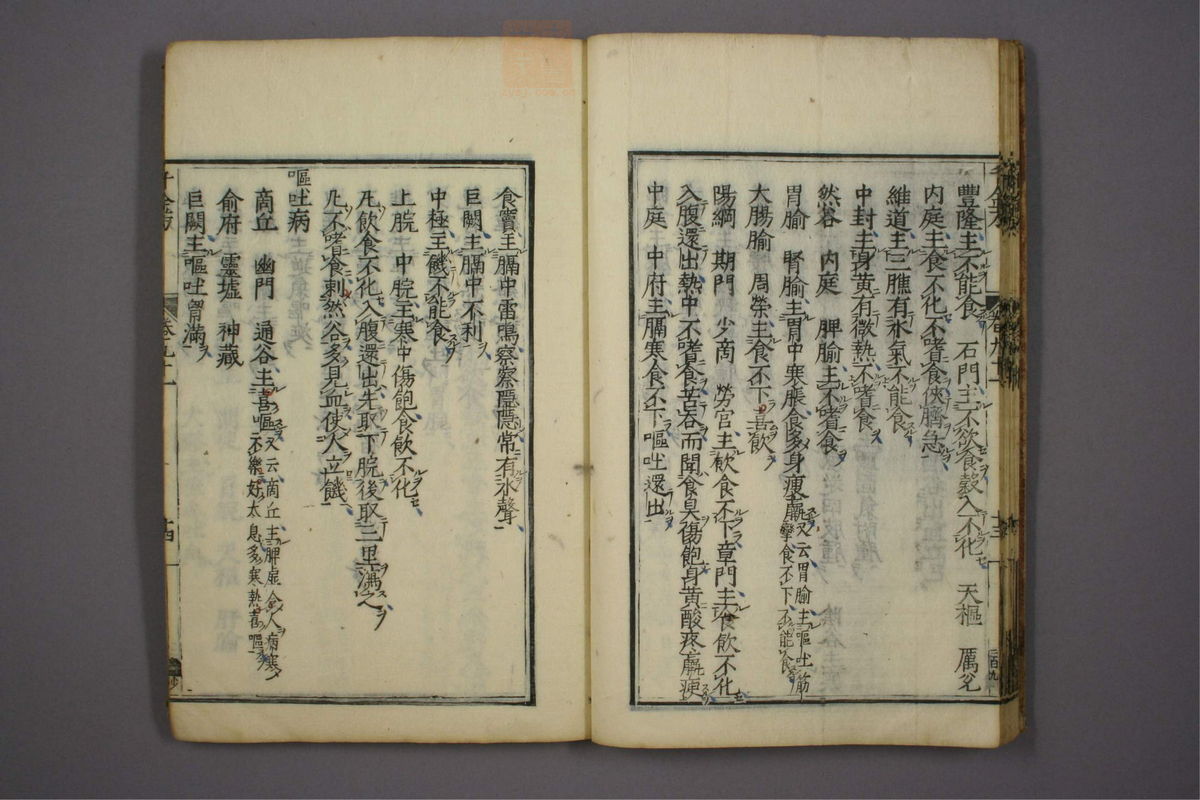 豐隆主不能食　石門主不欲食穀入不化　天樞　厲兊
内庭主食不化不嗜食俠臍急
維道主三膲有水氣不能食
中封主身黄有微熱不嗜食
然谷　内庭　脾腧主不嗜食
胃腧　腎腧主胃中寒脹食多身㾓羸又云胃腧主嘔吐筋攣食不下不能食
大腸腧　周榮主食不下喜飲
陽綱　期門　少商　勞宫主飲食不下章門主食飲不化
入腹還出熱中不嗜食苦吞而聞食臭傷飽身黄酸疼羸㾓
中庭　中府主膈寒食不下嘔吐還出
食竇主膈中雷鳴察察隱隱常有水聲
巨闕主膈中不利
中極主饑不能食
上脘　中脘主寒中傷飽食飲不化
凢飲食不化入腹還出先取下脘後取三里瀉之
凢不嗜食刺然谷多見血使人立饑
嘔吐病
商丘　幽門　通谷主喜嘔又云商丘主脾虚令人病寒不樂好太息多寒熱喜嘔
俞府　靈墟　神藏
巨闕主嘔吐胷滿